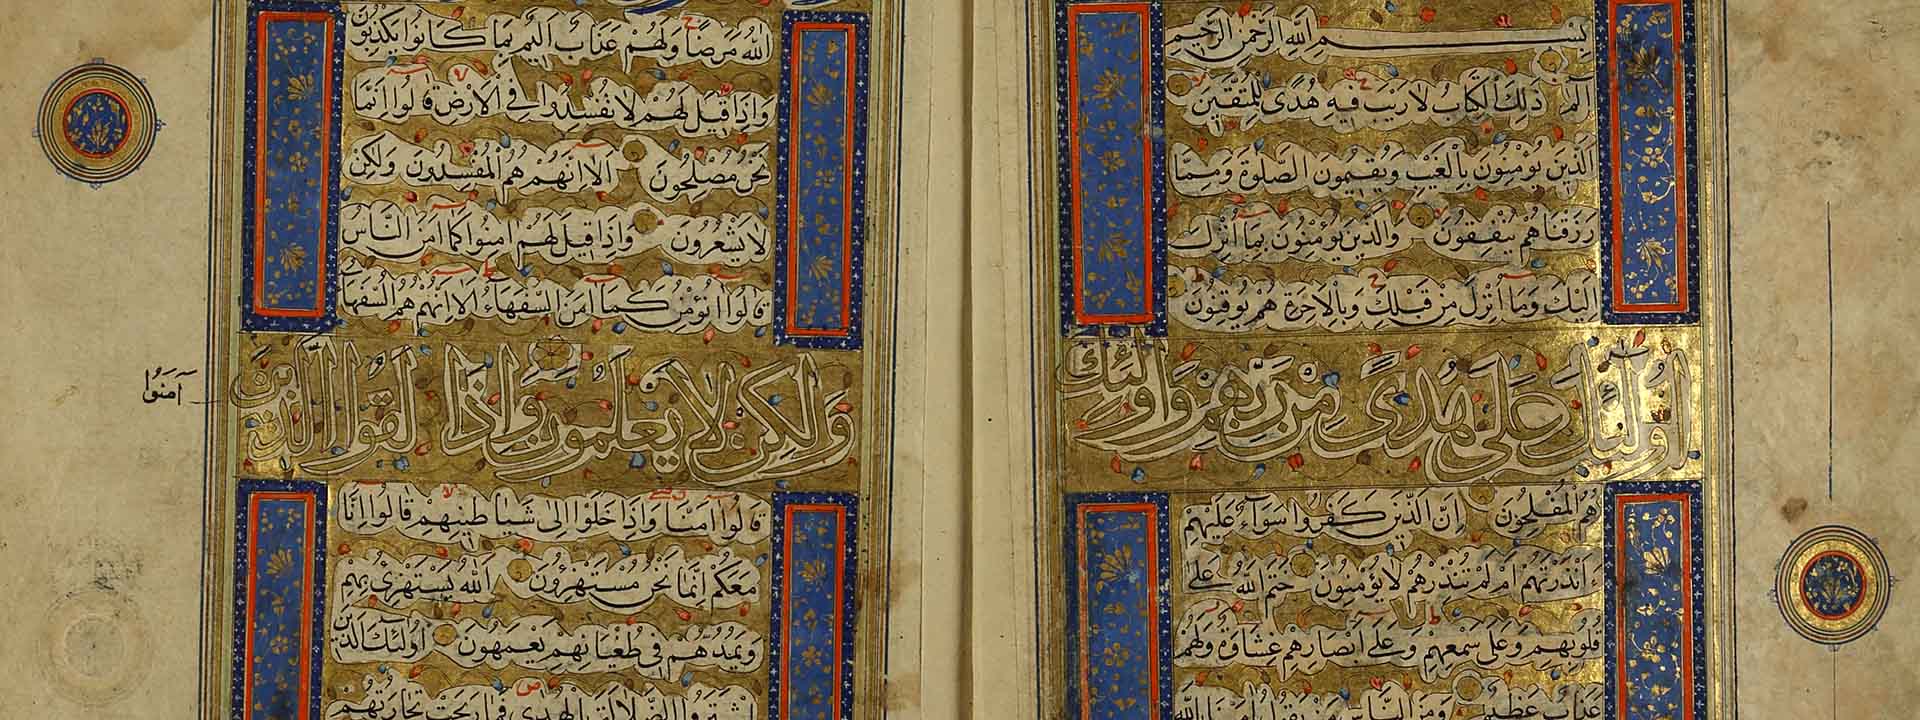 بِسْمِ اللّٰهِ الرَّحْمٰنِ الرَّحِيمِ
الٓمٓ ذٰلِكَ الْكِتَابُ لَا رَيْبَ فِيهِ هُدًى لِلْمُتَّقِينَ
الَّذِينَ يُؤْمِنُونَ بِالْغَيْبِ وَيُقِيمُونَ الصَّلٰوةَ وَمِمَّا
رَزَقْنَاهُمْ يُنْفِقُونَ وَالَّذِينَ يُؤْمِنُونَ بِمَا اُنْزِلَ
اِلَيْكَ وَمَا اُنْزِلَ مِنْ قَبْلِكَ وَبِالْاٰخِرَةِ هُمْ يُوقِنُونَ
اُولٰئِكَ عَلٰى هُدًى مِنْ رَبِّهِمْ وَاُولٰئِكَ
هُمُ الْمُفْلِحُونَ اِنَّ الَّذِينَ كَفَرُوا سَوَاءٌ عَلَيْهِمْ
ءَاَنْذَرْتَهُمْ اَمْ لَمْ تُنْذِرْهُمْ لَا يُؤْمِنُونَ خَتَمَ اللّٰهُ عَلٰى
قُلُوبِهِمْ وَعَلٰى سَمْعِهِمْ وَعَلٰى اَبْصَارِهِمْ غِشَاوَةٌ وَلَهُمْ
عَذَابٌ عَظِيمٌ وَمِنَ النَّاسِ مَنْ يَقُولُ اٰمَنَّا بِاللّٰهِ
اللّٰهُ مَرَضًا وَلَهُمْ عَذَابٌ اَلِيمٌ بِمَا كَانُوا يَكْذِبُونَ
وَاِذَا قِيلَ لَهُمْ لَا تُفْسِدُوا فِي الْاَرْضِ قَالُوا اِنَّمَا
نَحْنُ مُصْلِحُونَ اَلَا اِنَّهُمْ هُمُ الْمُفْسِدُونَ وَلٰكِنْ
لَا يَشْعُرُونَ وَاِذَا قِيلَ لَهُمْ اٰمِنُوا كَمَا اٰمَنَ النَّاسُ
قَالُوا اَنُؤْمِنُ كَمَا اٰمَنَ السُّفَهَاءُ اَلَا اِنَّهُمْ هُمُ السُّفَهَاءُ
وَلٰكِنْ لَا يَعْلَمُونَ وَاِذَا لَقُوا الَّذِينَ
اٰمَنُوا
قَالُوا اٰمَنَّا وَاِذَا خَلَوْا اِلٰى شَيَاطِينِهِمْ قَالُوا اِنَّا
مَعَكُمْ اِنَّمَا نَحْنُ مُسْتَهْزِؤُنَ اَللّٰهُ يَسْتَهْزِئُ بِهِمْ
وَيَمُدُّهُمْ فِي طُغْيَانِهِمْ يَعْمَهُونَ اُولٰئِكَ الَّذِينَ
اشْتَرَوُا الضَّلَالَةَ بِالْهُدٰى فَمَا رَبِحَتْ تِجَارَتُهُمْ